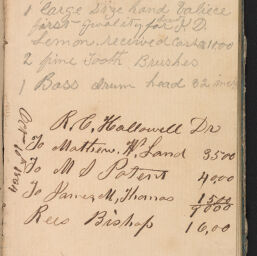 1 large Size hand Valiece
first quality for K. D.
Lemon. received Cash $11.00
2 fine Tooth Brushes
1 Bass drum head 32 inch
Oct 10th 1904
R. C, Hallowell Dr
To Mathew, W, Land 35 00
To M S Patent 40,00
To James, M, Thomas 15 00
90 00
Rees Bishop 16,00